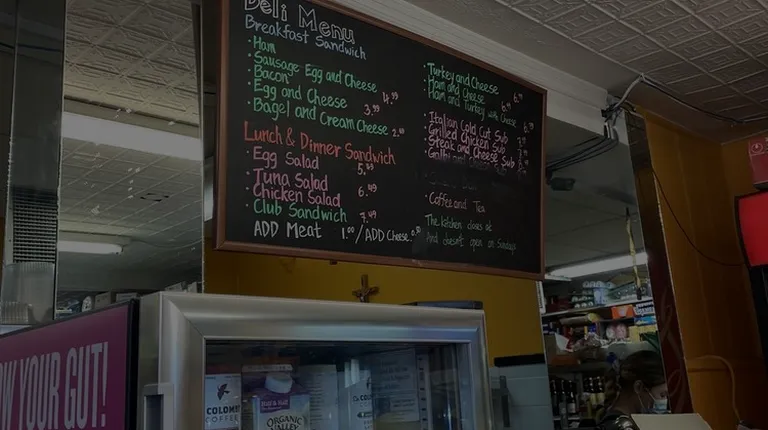 Deli Menu
Breakfast Sandwich
· Ham
· Sausage Egg and Cheese 4.99
· Bacon
· Egg and Cheese 3.99
· Bagel and Cream Cheese 2.
Lunch & Dinner Sandwich
· Egg Salad 5.49
· Tuna Salad
· Chicken Salad 6.49
· Club Sandwich 7.49
ADD Meat 1.00/ADD Cheese
· Turkey and Cheese 6.
· Ham and Cheese 6.
· Ham and Turkey with Cheese 6.
· Italian Cold Cut Sub
· Grilled Chicken Sub
· Steak and Cheese Sub
· Coffee and Tea
The kitchen closes at
And doesn't open on Sundays
W YOUR GUT!
COLOMB
COFFEE
ORGANIC
VALLEY